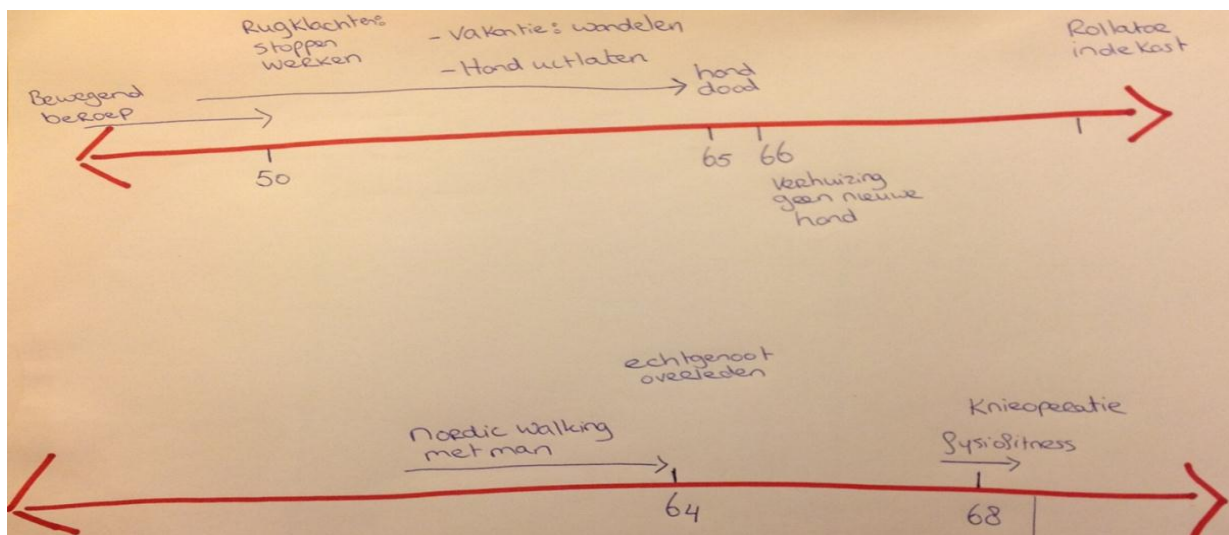 Rugklachten:
stoppen
werken
- Vakantie: wandelen
- Hond uitlaten
Bewegend
beroep
hond
dood
Rollator
in de kast
50
65
66
verhuizing
geen nieuwe
hond
echtgenoot
overleden
Nordic walking
met man
Knieoperatie
fysiofitness
64
68